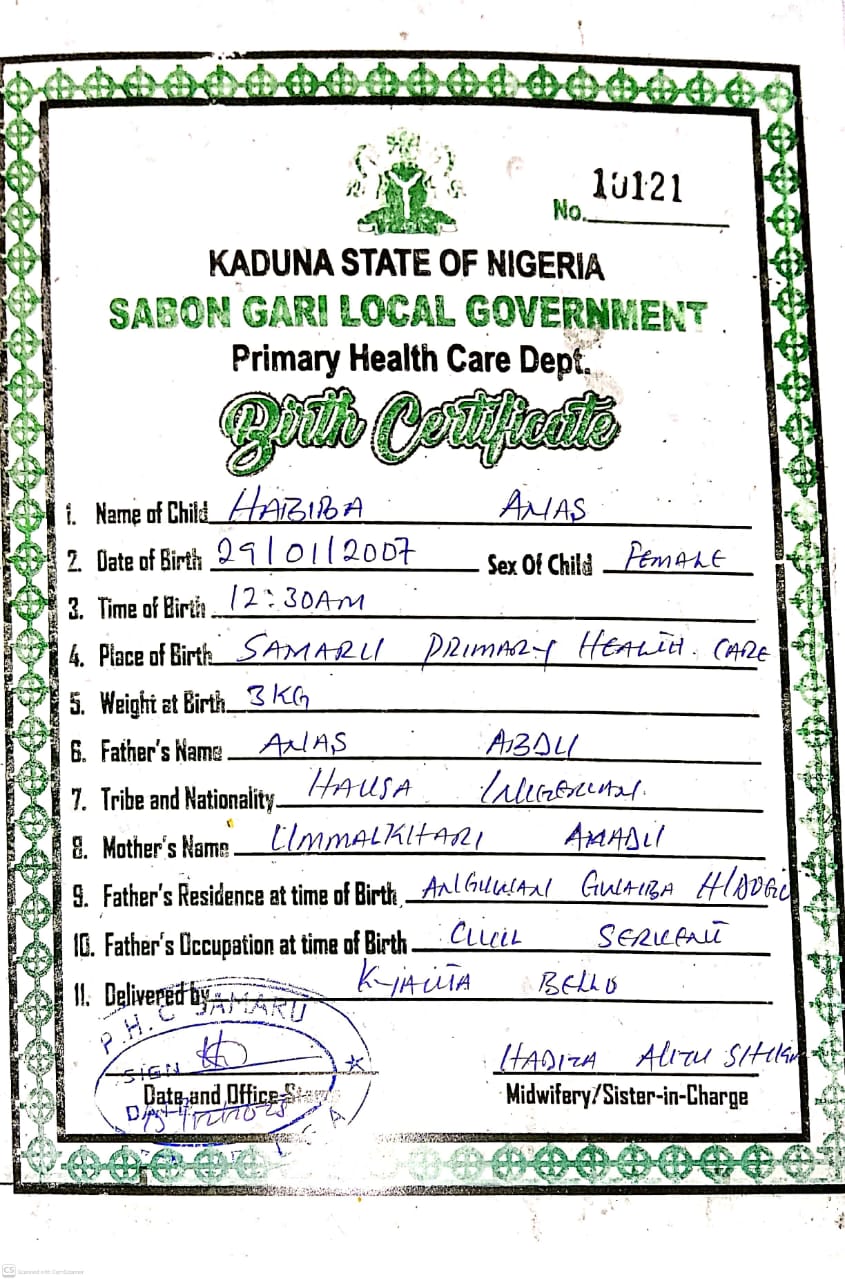 No. 10121
KADUNA STATE OF NIGERIA
SABON GARI LOCAL GOVERNMENT
Primary Health Care Dept.
Birth Certificate
1. Name of Child HABIBA ANAS
2. Date of Birth 29/01/2007 Sex Of Child FEMALE
3. Time of Birth 12:30AM
4. Place of Birth SAMARU PRIMARY HEALTH. CARE
5. Weight at Birth 3KG
6. Father's Name ANAS ABDU
7. Tribe and Nationality HAUSA
8. Mother's Name AMADU
9. Father's Residence at time of Birth ANGUWAN GWAIBA
10. Father's Occupation at time of Birth CIVIL SERVANT
11. Delivered by BELLO
P.H.C SAMARU
SIGN
HADIZA ALIYU
Date and Office Stamp
Midwifery/Sister-in-Charge
CS Scanned with CamScanner